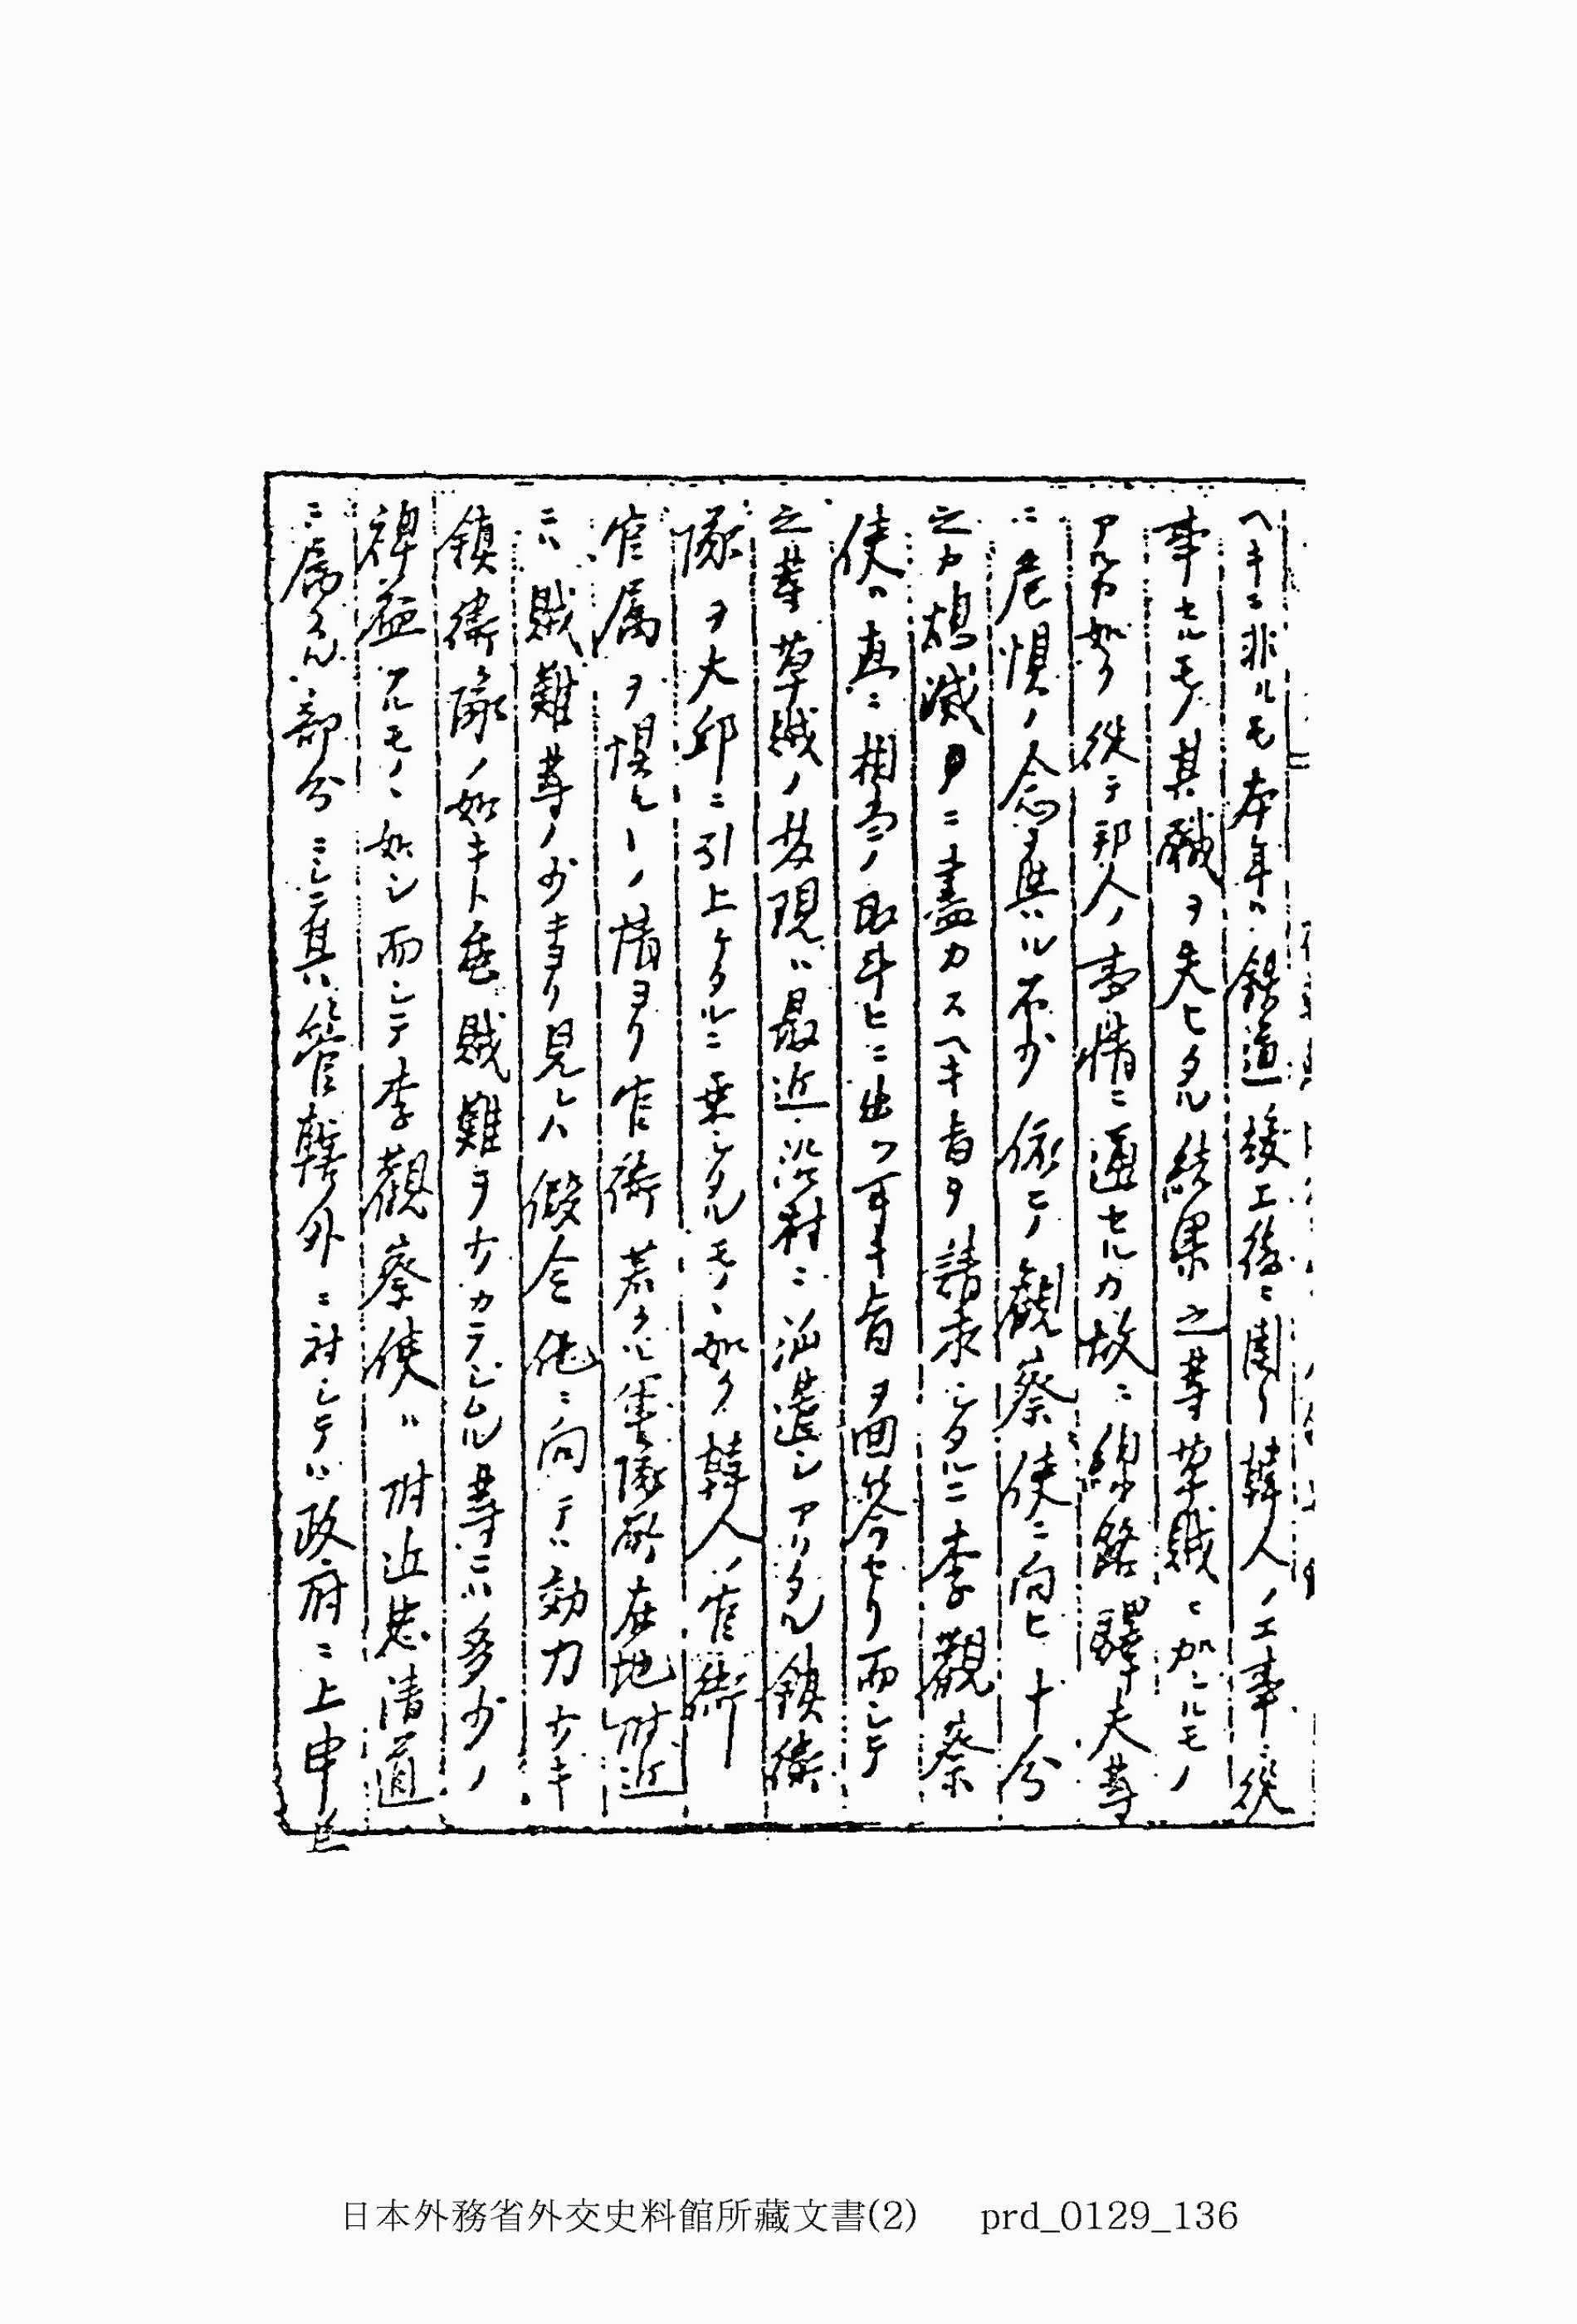 ヘキニ非ルモ本年ハ鉄道竣工後ニ関リ韓人ノ工事ニ從
事セルモノ其職ヲ失ヒタル結果之等草賊ニ加ハルモノ
アルカ如ク從テ邦人ノ事情ニ通セルカ故ニ線路驛夫等
ニ危惧ノ念ヲ與ル不少依テ觀察使ニ向ヒ十分
之カ撲滅方ニ盡力スヘキ旨ヲ請求シタルニ李觀察
使ハ直ニ相當ノ取斗ヒニ出ツ可キ旨ヲ回答セリ而シテ
之等草賊ノ发現ハ最近沿村ニ派遣シアリタル鎮衛
隊ヲ大邱ニ引上ケタルニ乗シタルモノヽ如ク韓人ノ官衙
官属ヲ惧ルヽノ情ヨリ官衙若クハ軍隊所在地附近
ニハ賊難等ノ少キヨリ見レハ假令他ニ向テハ効力ナキ
鎮衛隊ノ如キト虽賊難ヲナカラシムル等ニハ多少ノ
裨益アルモノヽ如シ而シテ李觀察使ハ附近忠清道
ニ属スル部分ニシテ其管轄外ニ対シテハ政府ニ上申シ
日本外務省外交史料館所藏文書(2) prd_0129_136